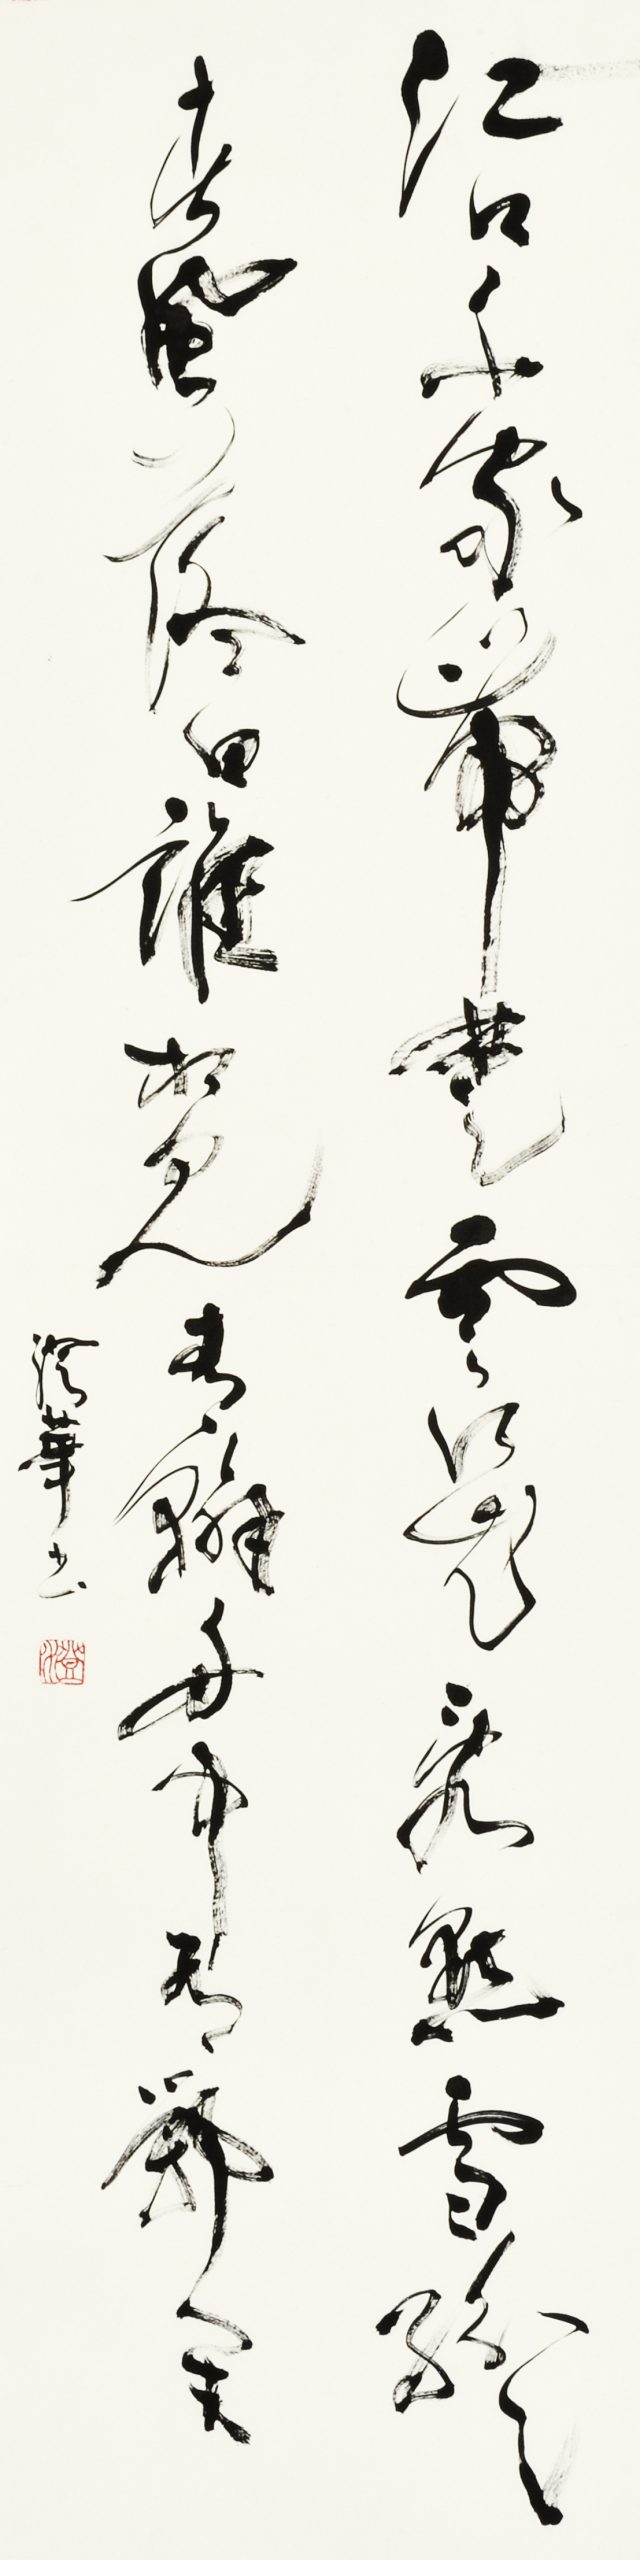 江口千家帶楚雲江花亂點雪紛々
春風落日誰相見青翰舟中有鄂君
澄華書
澄